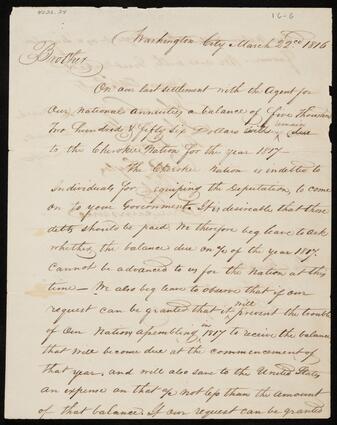 4026.24
16-6
Washington City March 22nd 1816
Brother
On our last settlement with the Agent for
Our National annuities, a balance of five thousand
two hundred & fifty six Dollars will remain due
to the Cherokee Nation for the year 1817
The Cherokee Nation is indebted to
Individuals for equiping the Deputation, to come
on to your Government. It is desireable that those
debts should be paid. We therefore beg leave to ask
whether the balance due on a/c of the year 1817.
Cannot be advanced to us for the Nation at this
time — We also beg leave to observe that if our
request can be granted that it will prevent the trouble
of Our Nation assembling in 1817 to receive the balance
that will become due at the commencement of
that year, and will also save to the United States
an expense on that a/c not less than the amount
of that balance. If our request can be granted